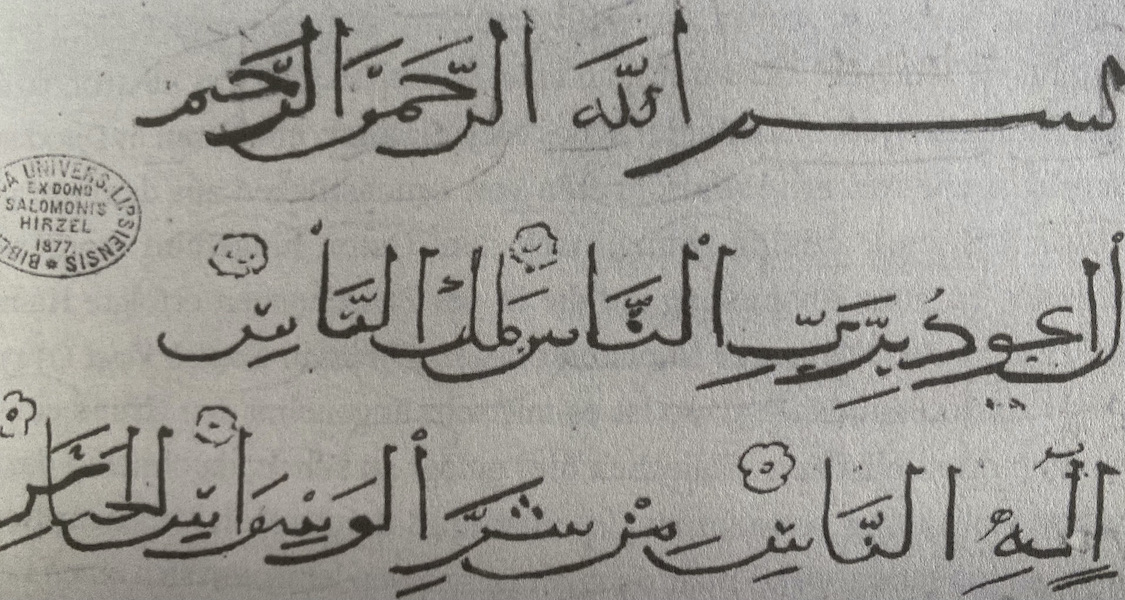 بسم الله الرَّحمن الرَّحيم
ل اعود بِرَبِّ النَّاس ملك النَّاسِ
إِلَهِ النَّاسِ مِنْ شَرِّ الوسواسِ الخنَّاس
CA UNIVERS. LIPSIENSIS * BIBL
EX DONO
SALOMONIS
HIRZEL
1877.